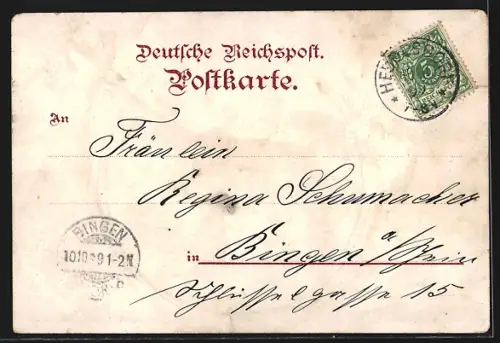 Deutsche Reichspost.
Postkarte.
An
Fräulein
Regina Schumacher
in Bingen a/Rhein
Schlüsselgasse 15
BINGEN
10 10 99 1-2N
5